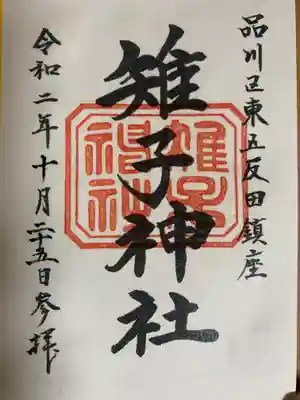 品川区東五反田鎮座
雉子神社
令和二年十月二十五日参拝